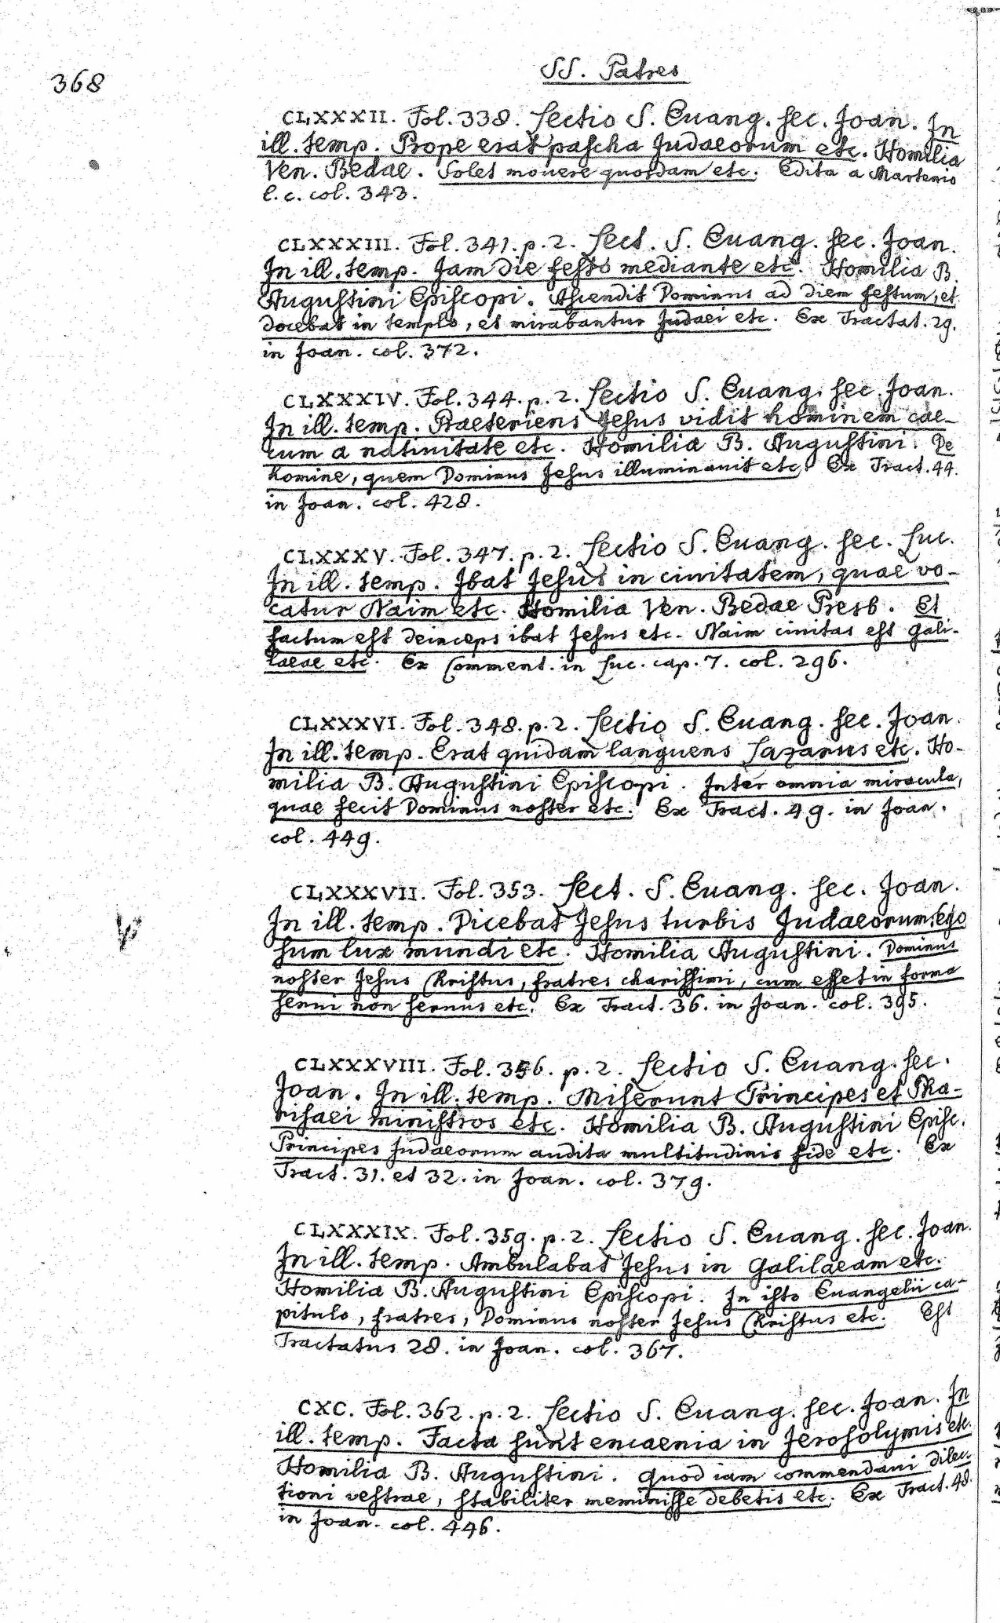 368
SS. Patres
CLXXXII. Fol. 338. Lectio S. Euang. sec. Joan. In
ill. temp. Prope erat pascha Judaeorum etc. Homilia
Ven. Bedae. Solet mouere quosdam etc. Edita a Martenio
l. c. col. 343.
CLXXXIII. Fol. 341. p. 2. Lect. S. Euang. sec. Joan.
In ill. temp. Jam die festo mediante etc. Homilia B.
Augustini Episcopi. Ascendit Dominus ad diem festum, et
docebat in templo, et mirabantur Judaei etc. Ex Tractat. 29.
in Joan. col. 372.
CLXXXIV. Fol. 344. p. 2. Lectio S. Euang. sec. Joan.
In ill. temp. Praeteriens Jesus vidit hominem cae-
cum a natiuitate etc. Homilia B. Augustini. De
homine, quem Dominus Jesus illuminauit etc. Ex Tract. 44.
in Joan. col. 428.
CLXXXV. Fol. 347. p. 2. Lectio S. Euang. sec. Luc.
In ill. temp. Ibat Jesus in ciuitatem, quae vo-
catur Naim etc. Homilia Ven. Bedae Presb. Et
factum est deinceps ibat Jesus etc. Naim ciuitas est Gali-
laeae etc. Ex Comment. in Luc. cap. 7. col. 296.
CLXXXVI. Fol. 348. p. 2. Lectio S. Euang. sec. Joan.
In ill. temp. Erat quidam languens Lazarus etc. Ho-
milia B. Augustini Episcopi. Inter omnia miracula,
quae fecit Dominus noster etc. Ex Tract. 49. in Joan.
col. 449.
CLXXXVII. Fol. 353. Lect. S. Euang. sec. Joan.
In ill. temp. Dicebat Jesus turbis Judaeorum: Ego
sum lux mundi etc. Homilia Augustini. Dominus
noster Jesus Christus, fratres charissimi, cum esset in forma
serui non seruus etc. Ex Tract. 36. in Joan. col. 395.
CLXXXVIII. Fol. 356. p. 2. Lectio S. Euang. sec.
Joan. In ill. temp. Miserunt Principes et Pha-
risaei ministros etc. Homilia B. Augustini Episc.
Principes Judaeorum audita multitudinis fide etc. Ex
Tract. 31. et 32. in Joan. col. 379.
CLXXXIX. Fol. 359. p. 2. Lectio S. Euang. sec. Joan.
In ill. temp. Ambulabat Jesus in Galilaeam etc.
Homilia B. Augustini Episcopi. In isto Euangelii ca-
pitulo, fratres, Dominus noster Jesus Christus etc. Est
Tractatus 28. in Joan. col. 367.
CXC. Fol. 362. p. 2. Lectio S. Euang. sec. Joan. In
ill. temp. Facta sunt encaenia in Jerosolymis etc.
Homilia B. Augustini. Quod iam commendaui dilec-
tioni vestrae, stabiliter meminisse debetis etc. Ex Tract. 48.
in Joan. col. 446.